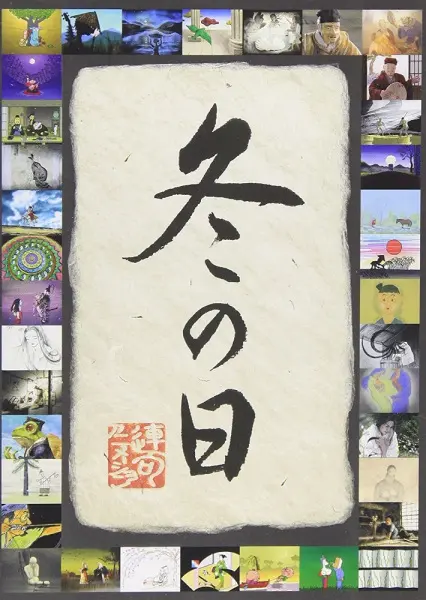 冬の日
連句
アニメーション